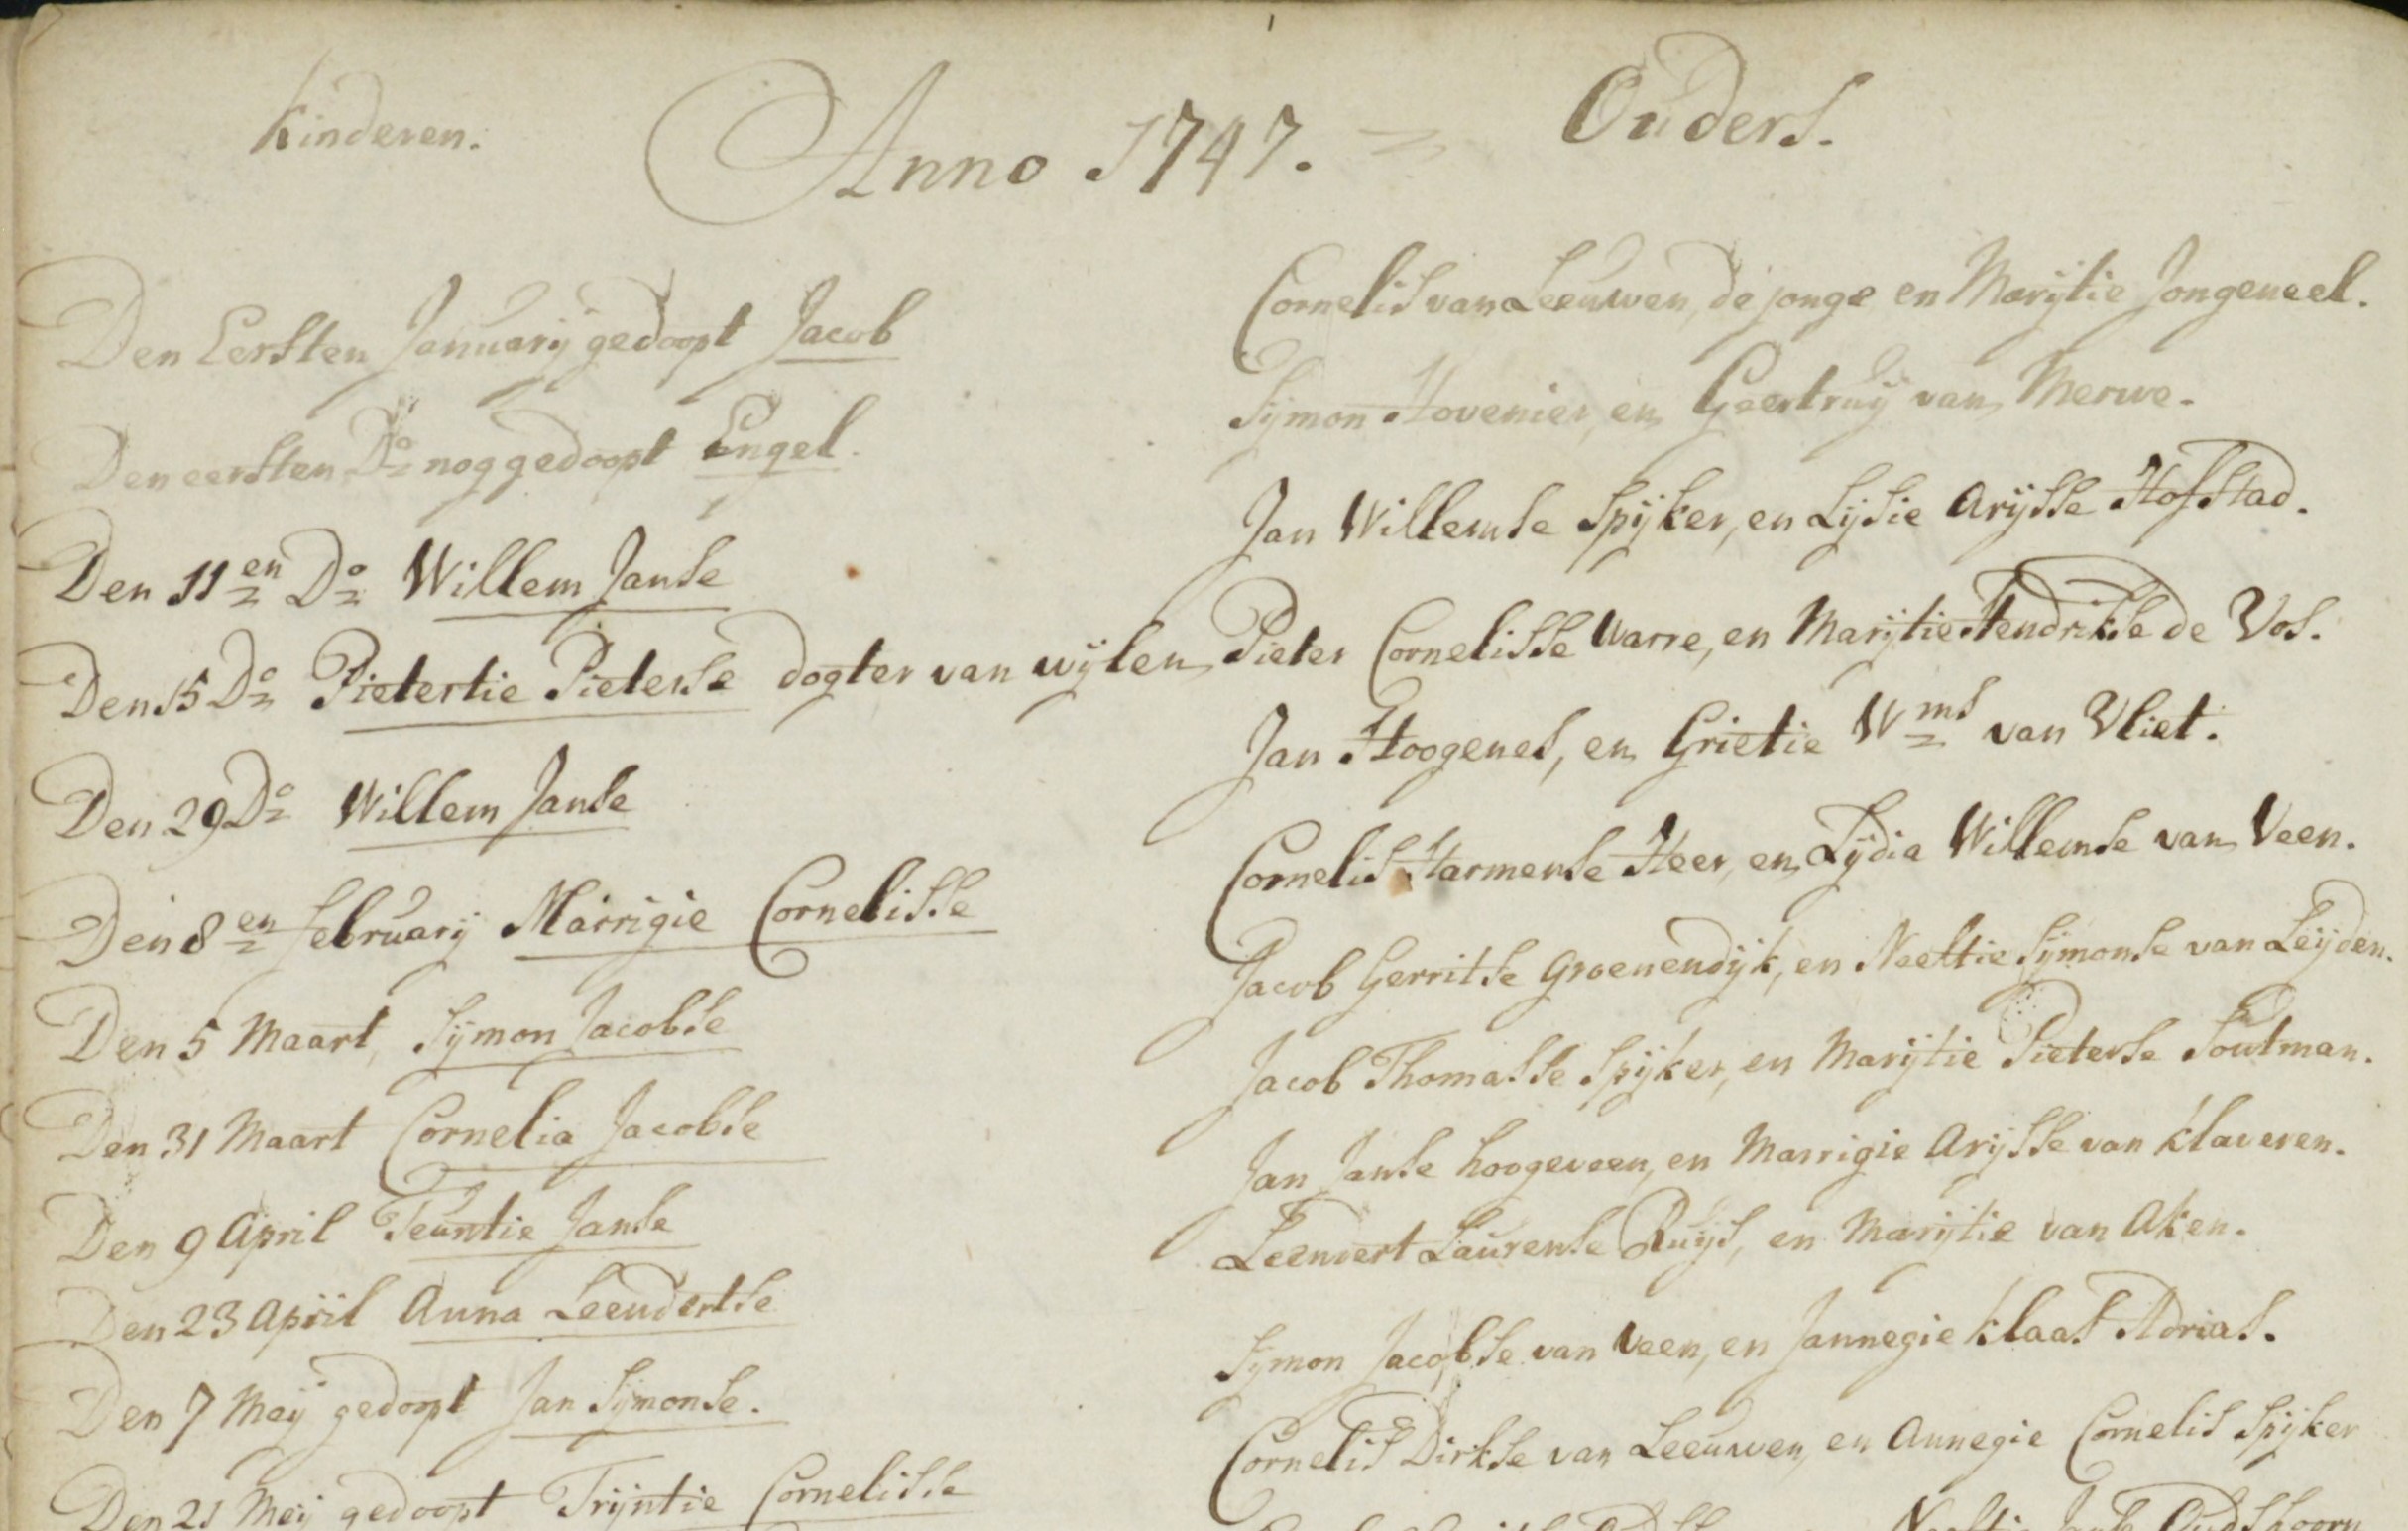 Kinderen. Anno 1747. = Ouders.
Den Eersten January gedoopt Jacob Cornelis van Leeuwen, de jonge en Marijtie Jongeneel.
Den eersten Do nog gedoopt Engel. Sijmon Hovenier, en Geertruij van Merwe.
Den 11en Do Willem Janse Jan Willemse Spijker, en Lijsie Arijsse Hofstad.
Den 15 Do Pietertie Pieterse dogter van wijlen Pieter Cornelisse Warre, en Marijtie Hendrikse de Vos.
Den 29 Do Willem Janse Jan Hoogenes, en Grietie Wms van Vliet.
Den 8en february Marrigie Cornelisse Cornelis Harmense Heer, en Lydia Willemse van Veen.
Den 5 Maart, Sijmon Jacobse Jacob Gerritse Groenendijk, en Neeltie Sijmonse van Leijden.
Den 31 Maart Cornelia Jacobse Jacob Thomasse Spijker, en Marijtie Pieterse Soutman.
Den 9 April Teuntie Janse Jan Janse hoogeveen, en Marrigie Arijsse van Klaveren.
Den 23 April Anna Leendertse Leendert Laurense Ruijs, en Marijtie van Aken.
Den 7 Meij gedoopt Jan Sijmonse. Sijmon Jacobse van Veen, en Jannegie Klaas Adrias.
Den 21 Meij gedoopt Trijntie Cornelisse Cornelis Dirkse van Leeuwen, en Annegie Cornelis Spijker
Neeltie Janse Oudshoorn